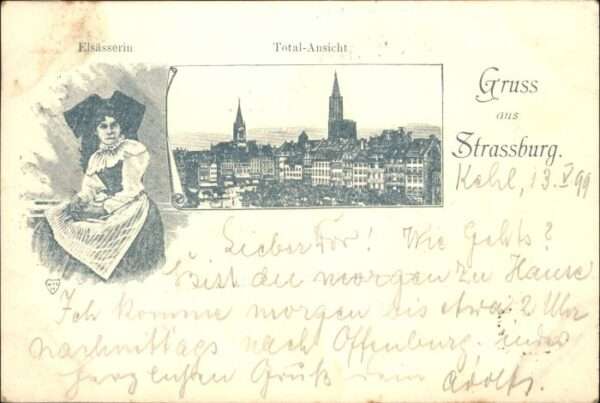 Elsässerin
Total-Ansicht
Gruss
aus
Strassburg.
Kehl, 13. V 99
Lieber! Wie Gehts?
Bist du morgen zu Hause
Ich komme morgen bis etwa 2 Uhr
nachmittags nach Offenburg.
herzlichen Gruß dein Adolf.